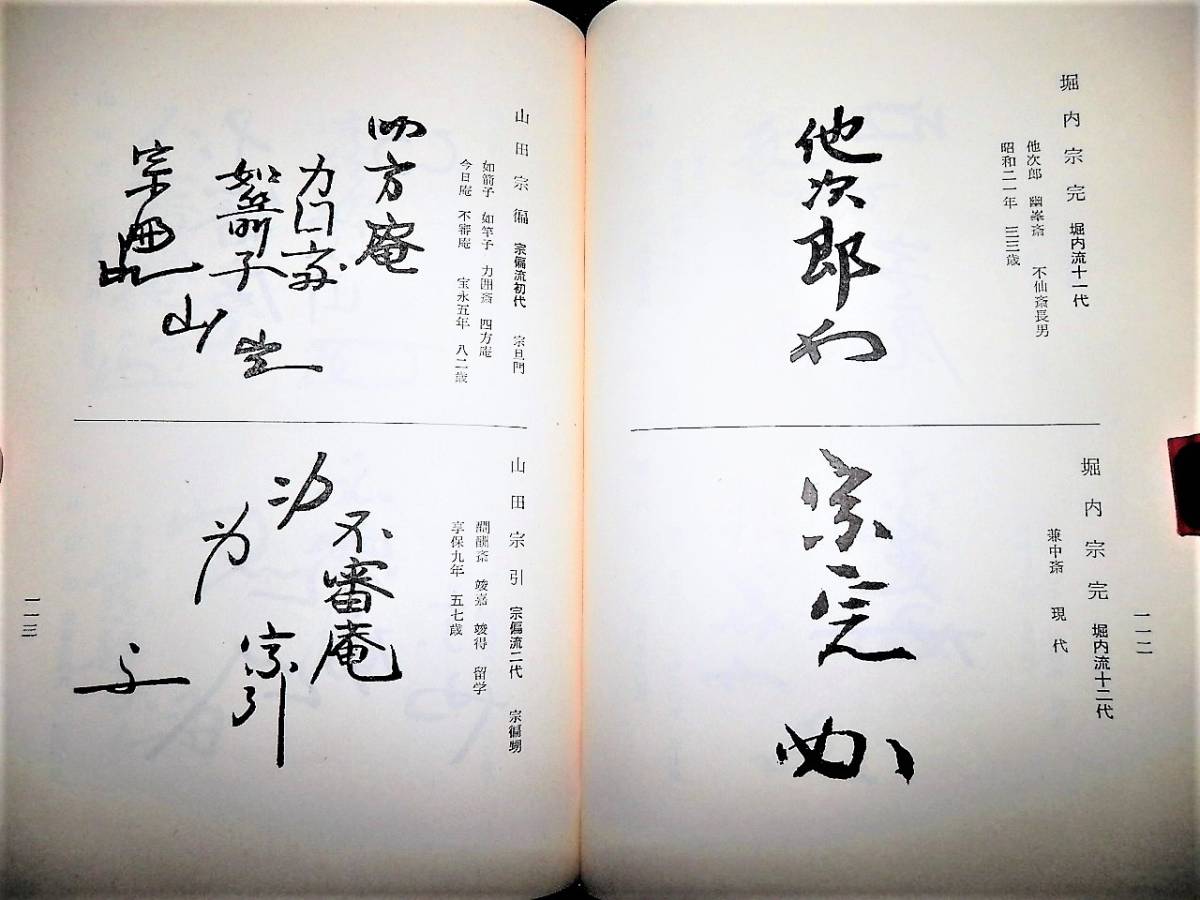 堀内宗完 堀内流十一代
他次郎 幽峯斎 不仙斎長男
昭和二一年 三三歳
他次郎
堀内宗完 堀内流十二代
兼中斎 現代
宗完
一一二
山田宗徧 宗偏流初代 宗旦門
如箭子 如竿子 力囲斎 四方庵
今日庵 不審庵 宝永五年 八二歳
四方庵
力囗斎
如箭子
宗徧
山
生
山田宗引 宗偏流二代 宗徧甥
竣嘉 竣得 留学
享保九年 五七歳
不審庵
宗引
一一三